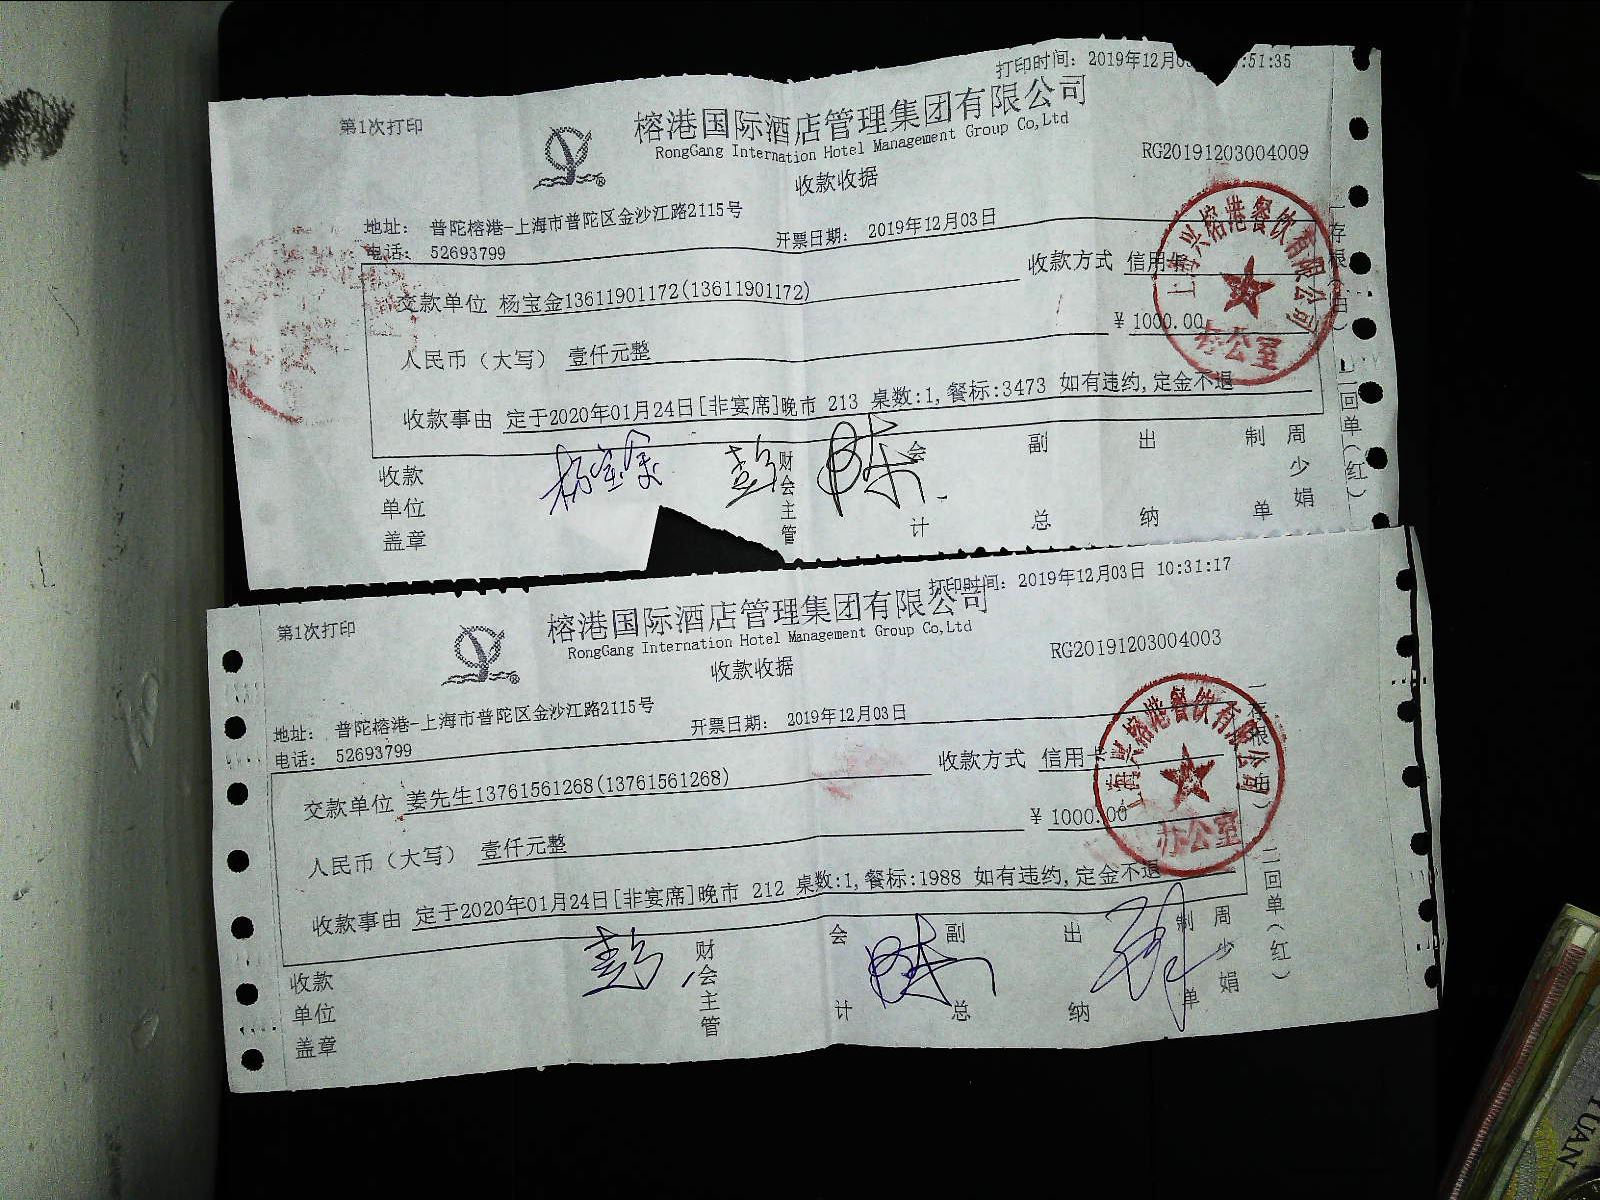 打印时间: 2019年12月0 :51:35
第1次打印
榕港国际酒店管理集团有限公司
RongGang Internation Hotel Management Group Co,Ltd
RG20191203004009
收款收据
地址: 普陀榕港-上海市普陀区金沙江路2115号
电话: 52693799
开票日期: 2019年12月03日
收款方式 信用卡
交款单位 杨宝金13611901172(13611901172)
¥ 1000.00
人民币（大写） 壹仟元整
收款事由 定于2020年01月24日[非宴席]晚市 213 桌数:1,餐标:3473 如有违约,定金不退
收款单位盖章
杨宝金
财会主管
会计
副总
出纳
制单
周少娟
一存根(白)
二回单(红)
上海兴榕港餐饮有限公司
办公室
打印时间: 2019年12月03日 10:31:17
第1次打印
榕港国际酒店管理集团有限公司
RongGang Internation Hotel Management Group Co,Ltd
RG20191203004003
收款收据
地址: 普陀榕港-上海市普陀区金沙江路2115号
电话: 52693799
开票日期: 2019年12月03日
收款方式 信用卡
交款单位 姜先生13761561268(13761561268)
¥ 1000.00
人民币（大写） 壹仟元整
收款事由 定于2020年01月24日[非宴席]晚市 212 桌数:1,餐标:1988 如有违约,定金不退
收款单位盖章
财会主管
会计
副总
出纳
制单
周少娟
一存根(白)
二回单(红)
上海兴榕港餐饮有限公司
办公室
YUAN